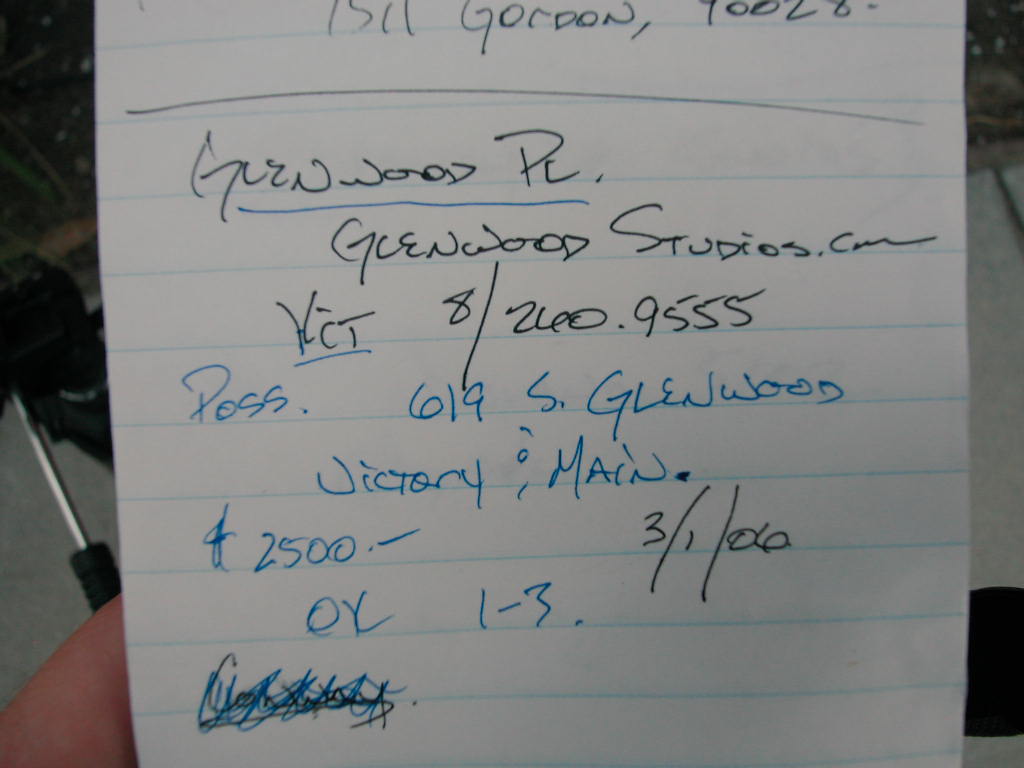 1511 GORDON, 90028.
GLENWOOD PL.
GLENWOOD STUDIOS.COM
8/260.9555
POSS. 619 S. GLENWOOD
VICTORY & MAIN.
$2500.- 3/1/06
OK 1-3.